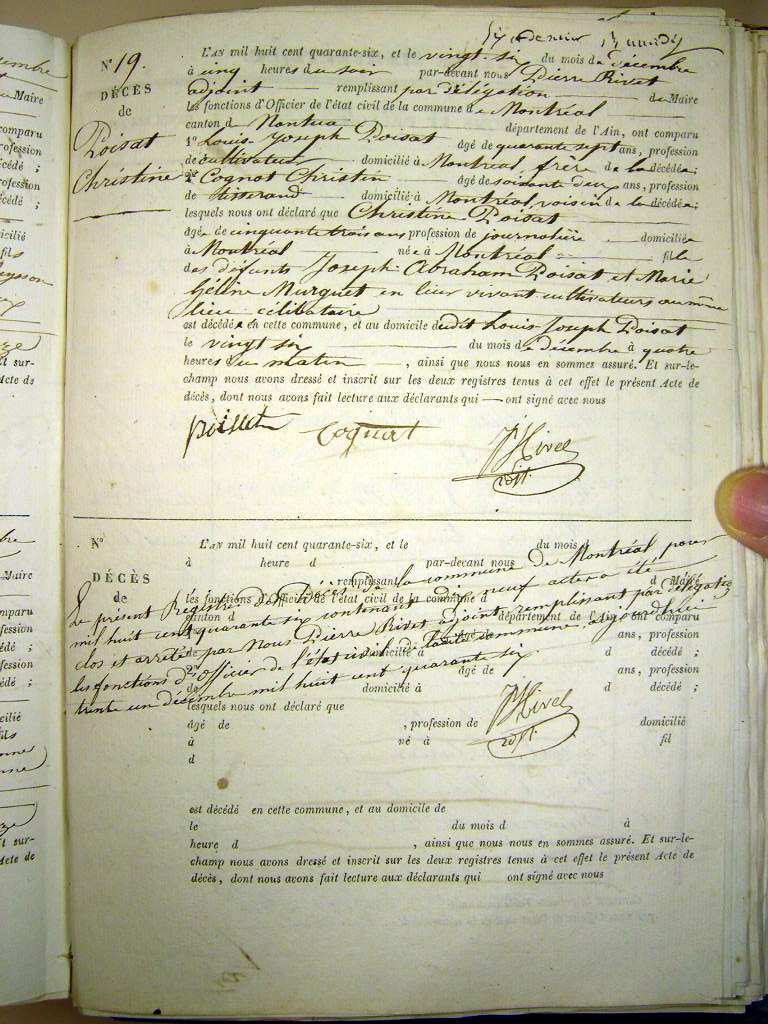 N° 19.
DÉCÈS
de
Poisat
Christine
L'AN mil huit cent quarante-six, et le vingt-six du mois de Décembre
à cinq heures du soir par-devant nous Pierre Rivet
adjoint remplissant par délégation de Maire
les fonctions d'Officier de l'état civil de la commune de Montréal
canton d Nantua département de l'Ain, ont comparu
1° Louis-Joseph Poisat âgé de quarante sept ans, profession
de cultivateur domicilié à Montréal, frère de la décédée;
2° Cognat Christin âgé de soixante deux ans, profession
de tisserand domicilié à Montréal, voisin de la décédée;
lesquels nous ont déclaré que Christine Poisat
âgée de cinquante trois ans profession de journalière domiciliée
à Montréal née à Montréal fille
des défunts Joseph-Abraham Poisat et Marie
héline Murguet en leur vivant cultivateurs au même
lieu célibataire
est décédée en cette commune, et au domicile dudit Louis-Joseph Poisat
le vingt six du mois de décembre à quatre
heures du matin, ainsi que nous nous en sommes assuré. Et sur-le-
champ nous avons dressé et inscrit sur les deux registres tenus à cet effet le présent Acte de
décès, dont nous avons fait lecture aux déclarants qui ont signé avec nous
Cognat PRivet
adjt.
N°
DÉCÈS
de
L'AN mil huit cent quarante-six, et le du mois d
à heure d par-devant nous
remplissant d Maire
les fonctions d'Officier de l'état civil de la commune d
canton d département de l'Ain, ont comparu
âgé de ans, profession
de domicilié à d décédé;
2° âgé de ans, profession
de domicilié à d décédé;
lesquels nous ont déclaré que
âgé de , profession de domicilié
à né à fil
d
est décédé en cette commune, et au domicile de
le du mois d à
heure d , ainsi que nous nous en sommes assuré. Et sur-le-
champ nous avons dressé et inscrit sur les deux registres tenus à cet effet le présent Acte de
décès, dont nous avons fait lecture aux déclarants qui ont signé avec nous
Le présent Registre des Décès de la commune de Montréal, pour
mil huit cent quarante six contenant dix neuf actes a été
clos et arrêté par Nous Pierre Rivet adjoint, remplissant par délégation
les fonctions d'officier de l'état civil de ladite commune. aujourdhui
trente un décembre mil huit cent quarante six.
PRivet
adjt.